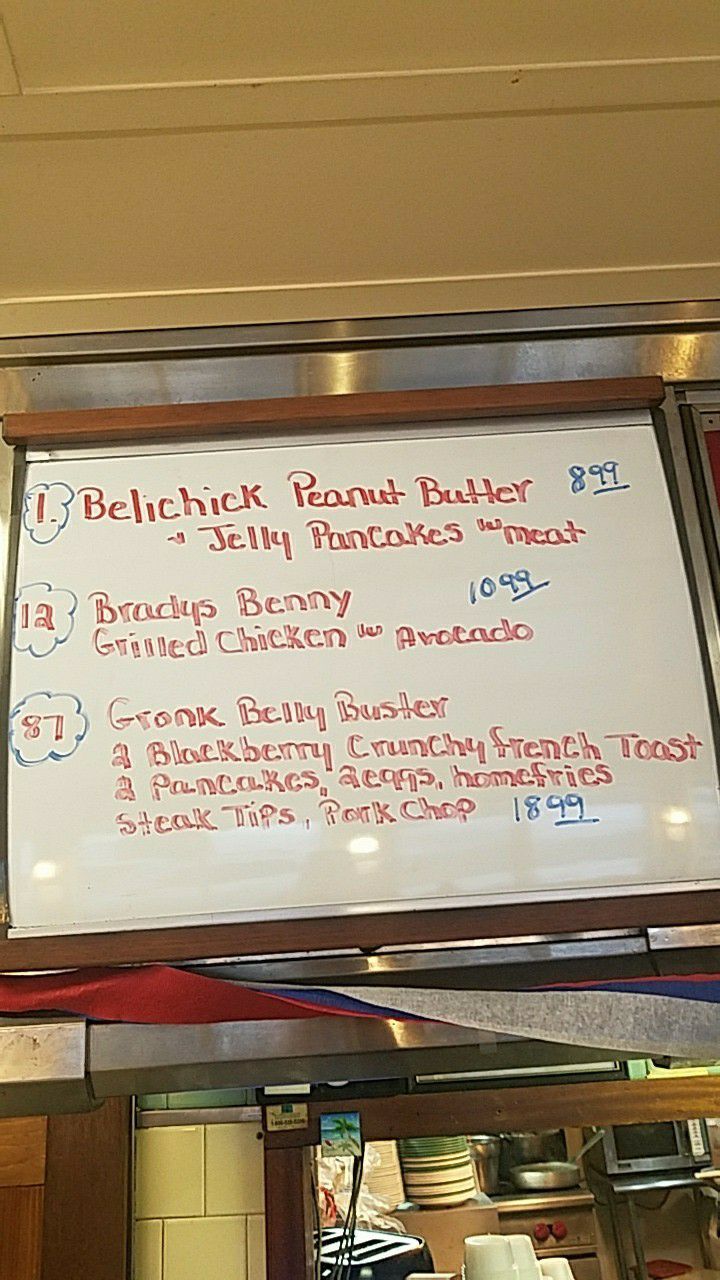 1. Belichick Peanut Butter 8 99
Jelly Pancakes w/ meat
12 Bradys Benny 10 99
Grilled Chicken w/ Avocado
87 Gronk Belly Buster
2 Blackberry Crunchy french Toast
2 Pancakes, 2eggs, homefries
Steak Tips, Pork Chop 18 99